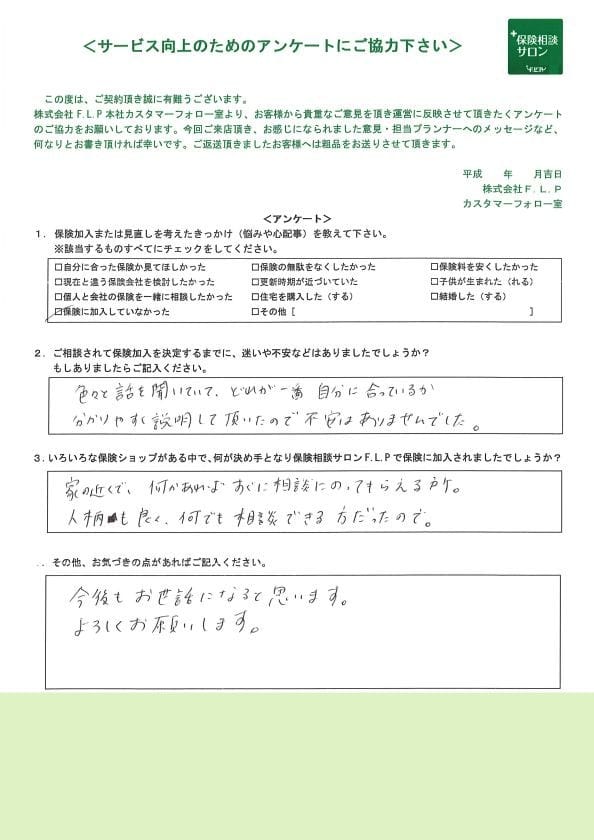 ＜サービス向上のためのアンケートにご協力下さい＞
+保険相談
サロン
F.L.P
この度は、ご契約頂き誠に有難うございます。
株式会社F.L.P本社カスタマーフォロー室より、お客様から貴重なご意見を頂き運営に反映させて頂きたくアンケート
のご協力をお願いしております。今回ご来店頂き、お感じになられました意見・担当プランナーへのメッセージなど、
何なりとお書き頂ければ幸いです。ご返送頂きましたお客様へは粗品をお送りさせて頂きます。
平成　　年　　月吉日
株式会社F.L.P
カスタマーフォロー室
＜アンケート＞
1. 保険加入または見直しを考えたきっかけ（悩みや心配事）を教えて下さい。
※該当するものすべてにチェックをしてください。
□自分に合った保険か見てほしかった　□保険の無駄をなくしたかった　□保険料を安くしたかった
□現在と違う保険会社を検討したかった　□更新時期が近づいていた　□子供が生まれた（れる）
□個人と会社の保険を一緒に相談したかった　□住宅を購入した（する）　□結婚した（する）
☑保険に加入していなかった　□その他［　　　］
2. ご相談されて保険加入を決定するまでに、迷いや不安などはありましたでしょうか？
もしありましたらご記入ください。
色々と話を聞いていて、どれが一番 自分に合っているか
分かりやすく説明して頂いたので不安はありませんでした。
3. いろいろな保険ショップがある中で、何が決め手となり保険相談サロンF.L.Pで保険に加入されましたでしょうか？
家の近くで、何かあればすぐに相談にのってもらえる所。
人柄も良く、何でも相談できる方だったので。
.. その他、お気づきの点があればご記入ください。
今後もお世話になると思います。
よろしくお願いします。